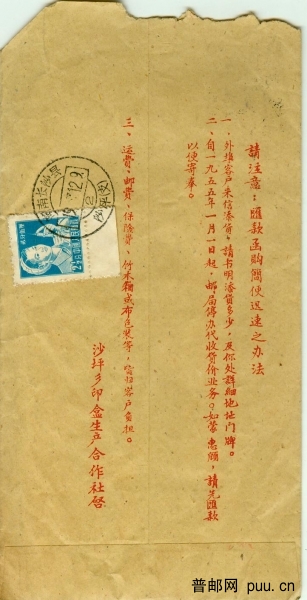 請注意：匯款函購簡便迅速之办法
一、外埠客户来信添貨，請书明添貨多少，及你处詳細地址门牌。
二、自一九五五年一月一日起，邮局停办代收货价业务。如蒙惠顾，請先匯款
以便寄奉。
三、运费、邮费、保險费、竹木箱或布包装等，需归客户负担。
沙坪乡印盒生产合作社啓
普邮网 puu.cn